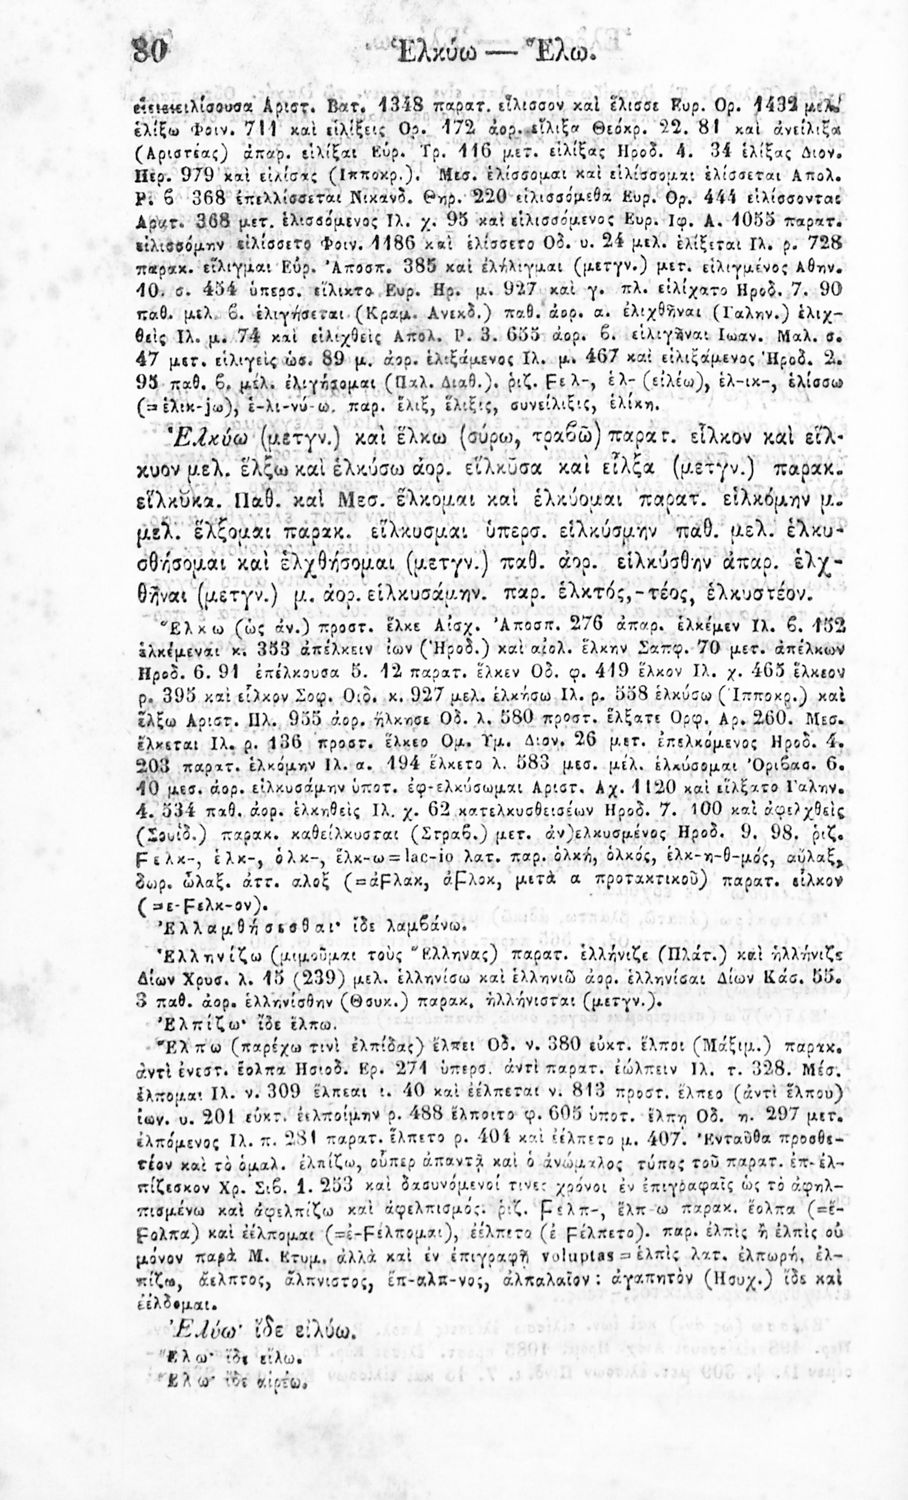 80 Ἑλκύω — Ἕλω.
εἱειειειλίσουσα Ἀριστ. Βατ. 1348 παρατ. εἵλισσον καὶ ἕλισσε Εὐρ. Ὀρ. 1432 μελ.
ἑλίξω Φοιν. 711 καὶ εἱλίξεις Ὀρ. 172 ἀορ. εἵλιξα Θεόκρ. 22. 81 καὶ ἀνείλιξα
(Ἀριστέας) ἀπαρ. εἱλίξαι Εὐρ. Τρ. 116 μετ. εἱλίξας Ηροδ. 4. 34 ἑλίξας Διον.
Περ. 979 καὶ εἱλίσας (Ιπποκρ.). Μεσ. ἑλίσσομαι καὶ εἱλίσσομαι ἑλίσσεται Απολ.
Ρ. ϐ 368 ἐπελλίσσεται Νικανδ. Θηρ. 220 εἱλισσόμεθα Ευρ. Ορ. 444 εἱλίσσονται
Αρατ. 368 μετ. ἑλισσόμενος Ιλ. χ. 95 καὶ εἱλισσόμενος Ευρ. Ιφ. Α. 1055 παρατ.
εἱλισσόμην εἱλίσσετο Φοιν. 1186 καὶ ἑλίσσετο Οδ. υ. 24 μελ. ἑλίξεται Ιλ. ρ. 728
παρακ. εἵλιγμαι Εὐρ. Ἀποσπ. 385 καὶ ἐλήλιγμαι (μετγν.) μετ. εἱλιγμένος Αθην.
10. σ. 454 ὑπερσ. εἵλικτο Ευρ. Ηρ. μ. 927 καὶ γ. πλ. εἱλίχατο Ηροδ. 7. 90
παθ. μελ. ϐ. ἑλιγήσεται (Κραμ. Ανεκδ.) παθ. ἀορ. α. ἑλιχθῆναι (Γαλην.) ἑλιχ-
θεὶς Ιλ. μ. 74 καὶ εἱλιχθεὶς Απολ. Ρ. 3. 655 ἀορ. ϐ. εἱλιγῆναι Ιωαν. Μαλ. σ.
47 μετ. εἱλιγεὶς ὡσ. 89 μ. ἀορ. ἑλιξάμενος Ιλ. μ. 467 καὶ εἱλιξάμενος Ἡροδ. 2.
95 παθ. ϐ. μέλ. ἑλιγήσομαι (Παλ. Διαθ.). ῥιζ. Ϝελ-, ἑλ- (εἱλέω), ἑλ-ικ-, ἑλίσσω
(=ἑλικ-jω), ἑ-λι-νύ-ω. παρ. ἕλιξ, ἕλιξις, συνείλιξις, ἑλίκη.
Ἑλκύω (μετγν.) καὶ ἕλκω (σύρω, τραϐῶ) παρατ. εἷλκον καὶ εἵλ-
κυον μελ. ἕλξω καὶ ἑλκύσω ἀορ. εἵλκυσα καὶ εἷλξα (μετγν.) παρακ.
εἵλκυκα. Παθ. καὶ Μεσ. ἕλκομαι καὶ ἑλκύομαι παρατ. εἱλκόμην μ.
μελ. ἕλξομαι παρακ. εἵλκυσμαι ὑπερσ. εἱλκύσμην παθ. μελ. ἑλκυ-
σθήσομαι καὶ ἑλχθήσομαι (μετγν.) παθ. ἀορ. εἱλκύσθην ἀπαρ. ἑλχ-
θῆναι (μετγν.) μ. ἀορ. εἱλκυσάμην. παρ. ἑλκτός,-τέος, ἑλκυστέον.
Ἕλκω (ὡς ἀν.) προστ. ἕλκε Αἰσχ. Ἀποσπ. 276 ἀπαρ. ἑλκέμεν Ιλ. ϐ. 152
ἑλκέμεναι κ. 353 ἀπέλκειν ἰων (Ἡροδ.) καὶ αἰολ. ἕλκην Σαπφ. 70 μετ. ἀπέλκων
Ηροδ. 6. 91 ἐπέλκουσα 5. 12 παρατ. ἕλκεν Οδ. φ. 419 ἕλκον Ιλ. χ. 465 ἕλκεον
ρ. 395 καὶ εἷλκον Σοφ. Οιδ. κ. 927 μελ. ἑλκήσω Ιλ. ρ. 558 ἑλκύσω (Ἱπποκρ.) καὶ
ἕλξω Αριστ. Πλ. 955 ἀορ. ἥλκησε Οδ. λ. 580 προστ. ἕλξατε Ορφ. Αρ. 260. Μεσ.
ἕλκεται Ιλ. ρ. 136 προστ. ἕλκεο Ομ. Υμ. Διον. 26 μετ. ἐπελκόμενος Ηροδ. 4.
203 παρατ. ἑλκόμην Ιλ. α. 194 ἕλκετο λ. 583 μεσ. μέλ. ἑλκύσομαι Ὀριϐασ. 6.
10 μεσ. ἀορ. εἱλκυσάμην ὑποτ. ἐφ-ελκύσωμαι Αριστ. Αχ. 1120 καὶ εἵλξατο Γαλην.
4. 534 παθ. ἀορ. ἑλκηθεὶς Ιλ. χ. 62 κατελκυσθεισέων Ηροδ. 7. 100 καὶ ἀφελχθεὶς
(Σουίδ.) παρακ. καθείλκυσται (Στραϐ.) μετ. ἀν)ελκυσμένος Ηροδ. 9. 98. ῥιζ.
Ϝελκ-, ἑλκ-, ὁλκ-, ἕλκ-ω=lac-io λατ. παρ. ὁλκή, ὁλκός, ἑλκ-η-θ-μός, αὖλαξ,
δωρ. ὦλαξ. ἀττ. αλοξ (=ἀϜλακ, ἀϜλοκ, μετὰ α προτακτικοῦ) παρατ. εἷλκον
(=ε-Ϝελκ-ον).
Ἐλλαμθήσεσθαι· ἴδε λαμϐάνω.
Ἑλληνίζω (μιμοῦμαι τοὺς Ἕλληνας) παρατ. ἑλλήνιζε (Πλάτ.) καὶ ἡλλήνιζε
Δίων Χρυσ. λ. 15 (239) μελ. ἑλληνίσω καὶ ἑλληνιῶ ἀορ. ἑλληνίσαι Δίων Κάσ. 55.
3 παθ. ἀορ. ἑλληνίσθην (Θουκ.) παρακ. ἡλλήνισται (μετγν.).
Ἐλπίζω· ἴδε ἔλπω.
Ἔλπω (παρέχω τινὶ ἐλπίδας) ἔλπει Οδ. ν. 380 εὐκτ. ἔλποι (Μάξιμ.) παρακ.
ἀντὶ ἐνεστ. ἔολπα Ησιοδ. Ερ. 271 ὑπερσ. ἀντὶ παρατ. ἐώλπειν Ιλ. τ. 328. Μέσ.
ἔλπομαι Ιλ. ν. 309 ἔλπεαι ι. 40 καὶ ἐέλπεται ν. 813 προστ. ἔλπεο (ἀντὶ ἔλπου)
ἰων. υ. 201 εὐκτ. ἐελποίμην ρ. 488 ἔλποιτο φ. 605 ὑποτ. ἔλπῃ Οδ. η. 297 μετ.
ἐλπόμενος Ιλ. π. 281 παρατ. ἔλπετο ρ. 404 καὶ ἐέλπετο μ. 407. Ἐνταῦθα προσθε-
τέον καὶ τὸ ὁμαλ. ἐλπίζω, οὗπερ ἀπαντᾷ καὶ ὁ ἀνώμαλος τύπος τοῦ παρατ. ἐπ-έλ-
πίζεσκον Χρ. Σιϐ. 1. 253 καὶ δασυνόμενοί τινες χρόνοι ἐν ἐπιγραφαῖς ὡς τὸ ἀφηλ-
πισμένω καὶ ἀφελπίζω καὶ ἀφελπισμός. ῥιζ. Ϝελπ-, ἔλπ-ω παρακ. ἔολπα (=ἔ-
Ϝολπα) καὶ ἐέλπομαι (=ἐ-Ϝέλπομαι), ἐέλπετο (ἐ Ϝέλπετο). παρ. ἐλπὶς ἢ ἑλπὶς οὐ
μόνον παρὰ Μ. Ετυμ. ἀλλὰ καὶ ἐν ἐπιγραφῇ voluptas=ἐλπὶς λατ. ἐλπωρή, ἐλ-
πίζω, ἄελπτος, ἄλπνιστος, ἔπ-αλπ-νος, ἀλπαλαῖον: ἀγαπητὸν (Ησυχ.) ἴδε καὶ
ἐέλδομαι.
Ἐλύω· ἴδε εἰλύω.
Ἔλω· ἴδε εἴλω.
Ἕλω· ἴδε αἱρέω.